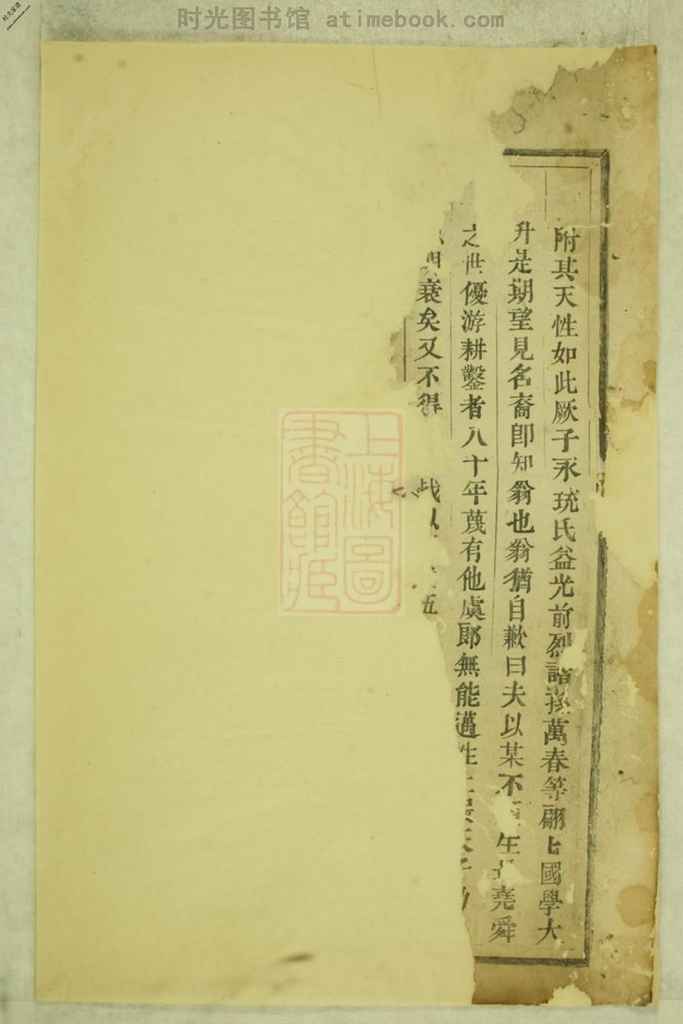 时光图书馆 atimebook.com
附其天性如此厥子永珫氏益光前烈諸孫萬春等翩上國學大
升是期望見名裔即知翁也翁猶自歉曰夫以某不 生 堯舜
之世優游耕鑿者八十年蔑有他虞郎無能邁
衰矣又不得
五
上海圖書館藏